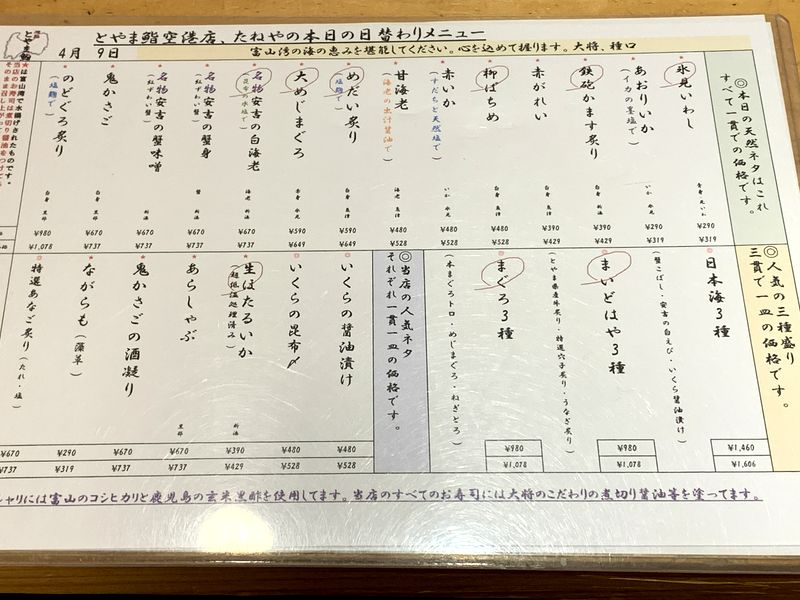 とやま鮨空港店、たねやの本日の日替わりメニュー
4月 9日
富山湾の海の恵みを堪能してください。心を込めて握ります。大将、種口
とやま鮨
◎本日の天然ネタはこれ
すべて一貫での価格です。
氷見いわし
¥290
¥319
あおりいか
(イカの墨塩で)
¥290
¥319
鉄砲かます炙り
¥390
¥429
赤がれい
¥390
¥429
柳ばちめ
¥480
¥528
赤いか
(すだちと天然塩で)
¥480
¥528
甘海老
(海老の出汁醤油で)
¥480
¥528
めだい炙り
(塩麹で)
¥590
¥649
大めじまぐろ
¥590
¥649
名物安吉の白海老
(昆布の水塩で)
¥670
¥737
名物安吉の蟹身
(紅ずわい蟹)
¥670
¥737
名物安吉の蟹味噌
(紅ずわい蟹)
¥670
¥737
鬼かさご
¥670
¥737
のどぐろ炙り
(塩麹で)
¥980
¥1,078
★は富山湾で水揚げされたものです。
当店のお寿司は煮切り醤油をつけて
◎人気の三種盛り
三貫で一皿の価格です。
日本海3種
(蟹こぼし・安吉の白えび・いくら醤油漬け)
¥1,460
¥1,606
まいどはや3種
(とやま県産牛炙り・特選穴子炙り・うなぎ炙り)
¥980
¥1,078
まぐろ3種
(本まぐろトロ・めじまぐろ・ねぎとろ)
¥980
¥1,078
◎当店の人気ネタ
それぞれ一貫一皿の価格です。
いくらの醤油漬け
¥480
¥528
いくらの昆布〆
¥480
¥528
生ほたるいか
(超低温処理済み)
¥390
¥429
あらしゃぶ
¥670
¥737
鬼かさごの酒凝り
¥670
¥737
ながらも(藻草)
¥290
¥319
特選あなご炙り(たれ・塩)
¥670
¥737
シャリには富山のコシヒカリと鹿児島の玄米黒酢を使用してます。当店のすべてのお寿司には大将のこだわりの煮切り醤油等を塗ってます。